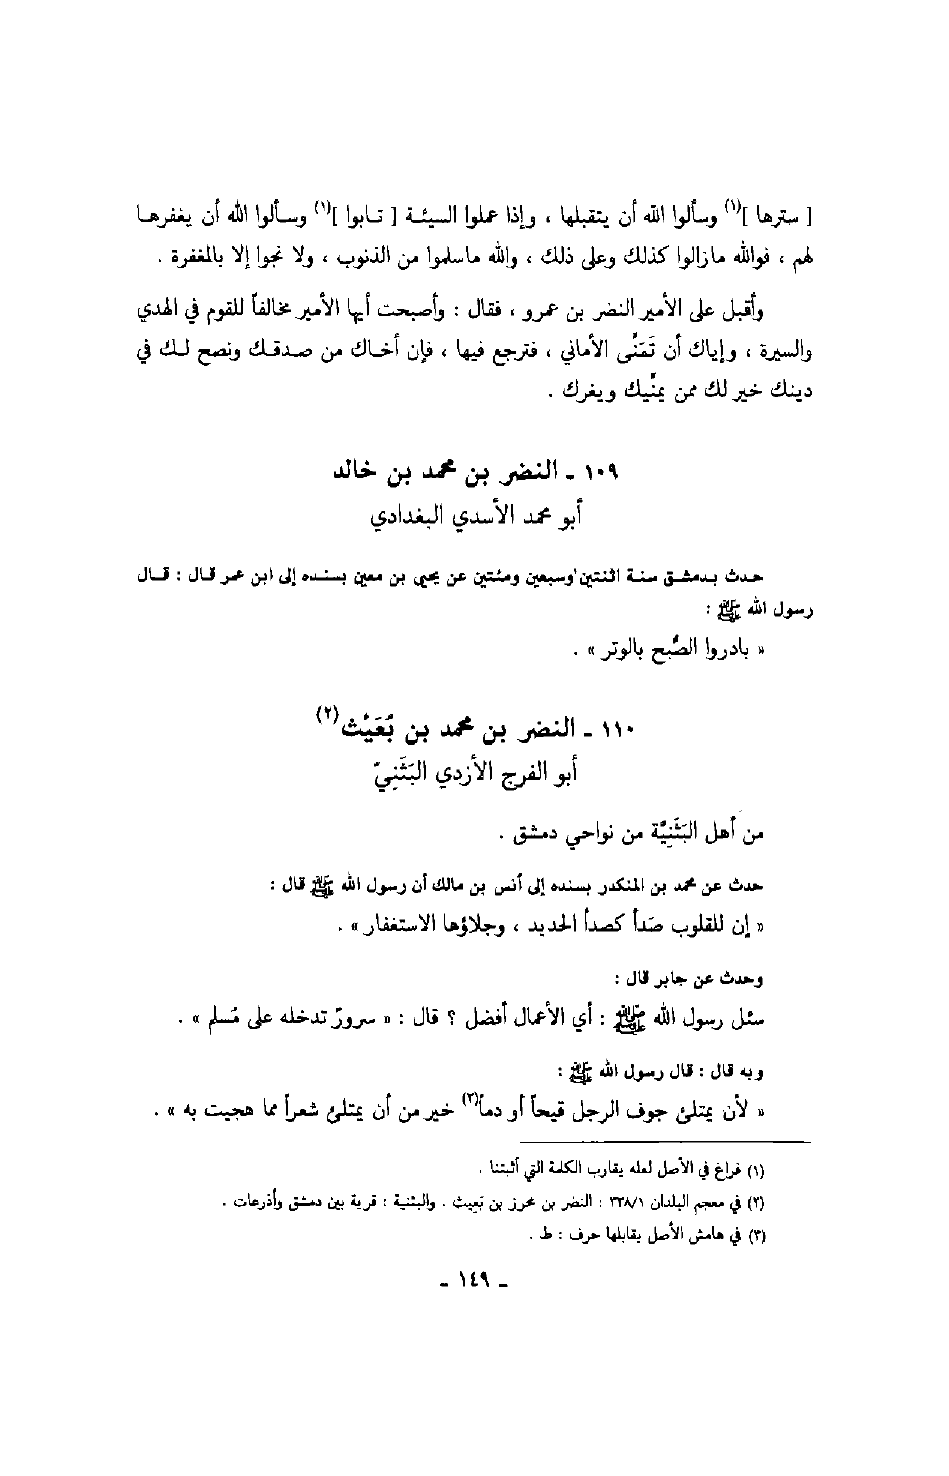 [ سترها ](١) وسألوا الله أن يتقبلها ، وإذا عملوا السيئة [ تابوا ](١) وسألوا الله أن يغفرها
لهم ، فوالله مازالوا كذلك وعلى ذلك ، والله ماسلموا من الذنوب ، ولا نجوا إلا بالمغفرة .
وأقبل على الأمير النضر بن عمرو ، فقال : وأصبحت أيها الأمير مخالفاً للقوم في الهدي
والسيرة ، وإياك أن تَمَنَّى الأماني ، فترجع فيها ، فإن أخاك من صدقك ونصح لك في
دينك خير لك ممن يمنّيك ويغرك .
١٠٩ ـ النضر بن محمد بن خالد
أبو محمد الأسدي البغدادي
حدث بدمشق سنة اثنتين وسبعين ومئتين عن يحيى بن معين بسنده إلى ابن عمر قال : قال
رسول الله ﷺ :
« بادروا الصُّبح بالوتر » .
١١٠ ـ النضر بن محمد بن بُعَيْث(٢)
أبو الفرج الأزدي البَثَنِيّ
من أهل البَثَنِيَّة من نواحي دمشق .
حدث عن محمد بن المنكدر بسنده إلى أنس بن مالك أن رسول الله ﷺ قال :
« إن للقلوب صَدأ كصدأ الحديد ، وجلاؤها الاستغفار » .
وحدث عن جابر قال :
سئل رسول الله ﷺ : أي الأعمال أفضل ؟ قال : « سرورٌ تدخله على مُسلم » .
وبه قال : قال رسول الله ﷺ :
« لأن يمتلئ جوف الرجل قيحاً أو دماً(٣) خير من أن يمتلئ شعراً مما هجيت به » .
(١) فراغ في الأصل لعله يقارب الكلمة التي أثبتنا .
(٢) في معجم البلدان ٣٣٨/١ : النضر بن محرز بن بَعيث . والبثنية : قرية بين دمشق وأذرعات .
(٣) في هامش الأصل يقابلها حرف : ط .
ـ ١٤٩ ـ